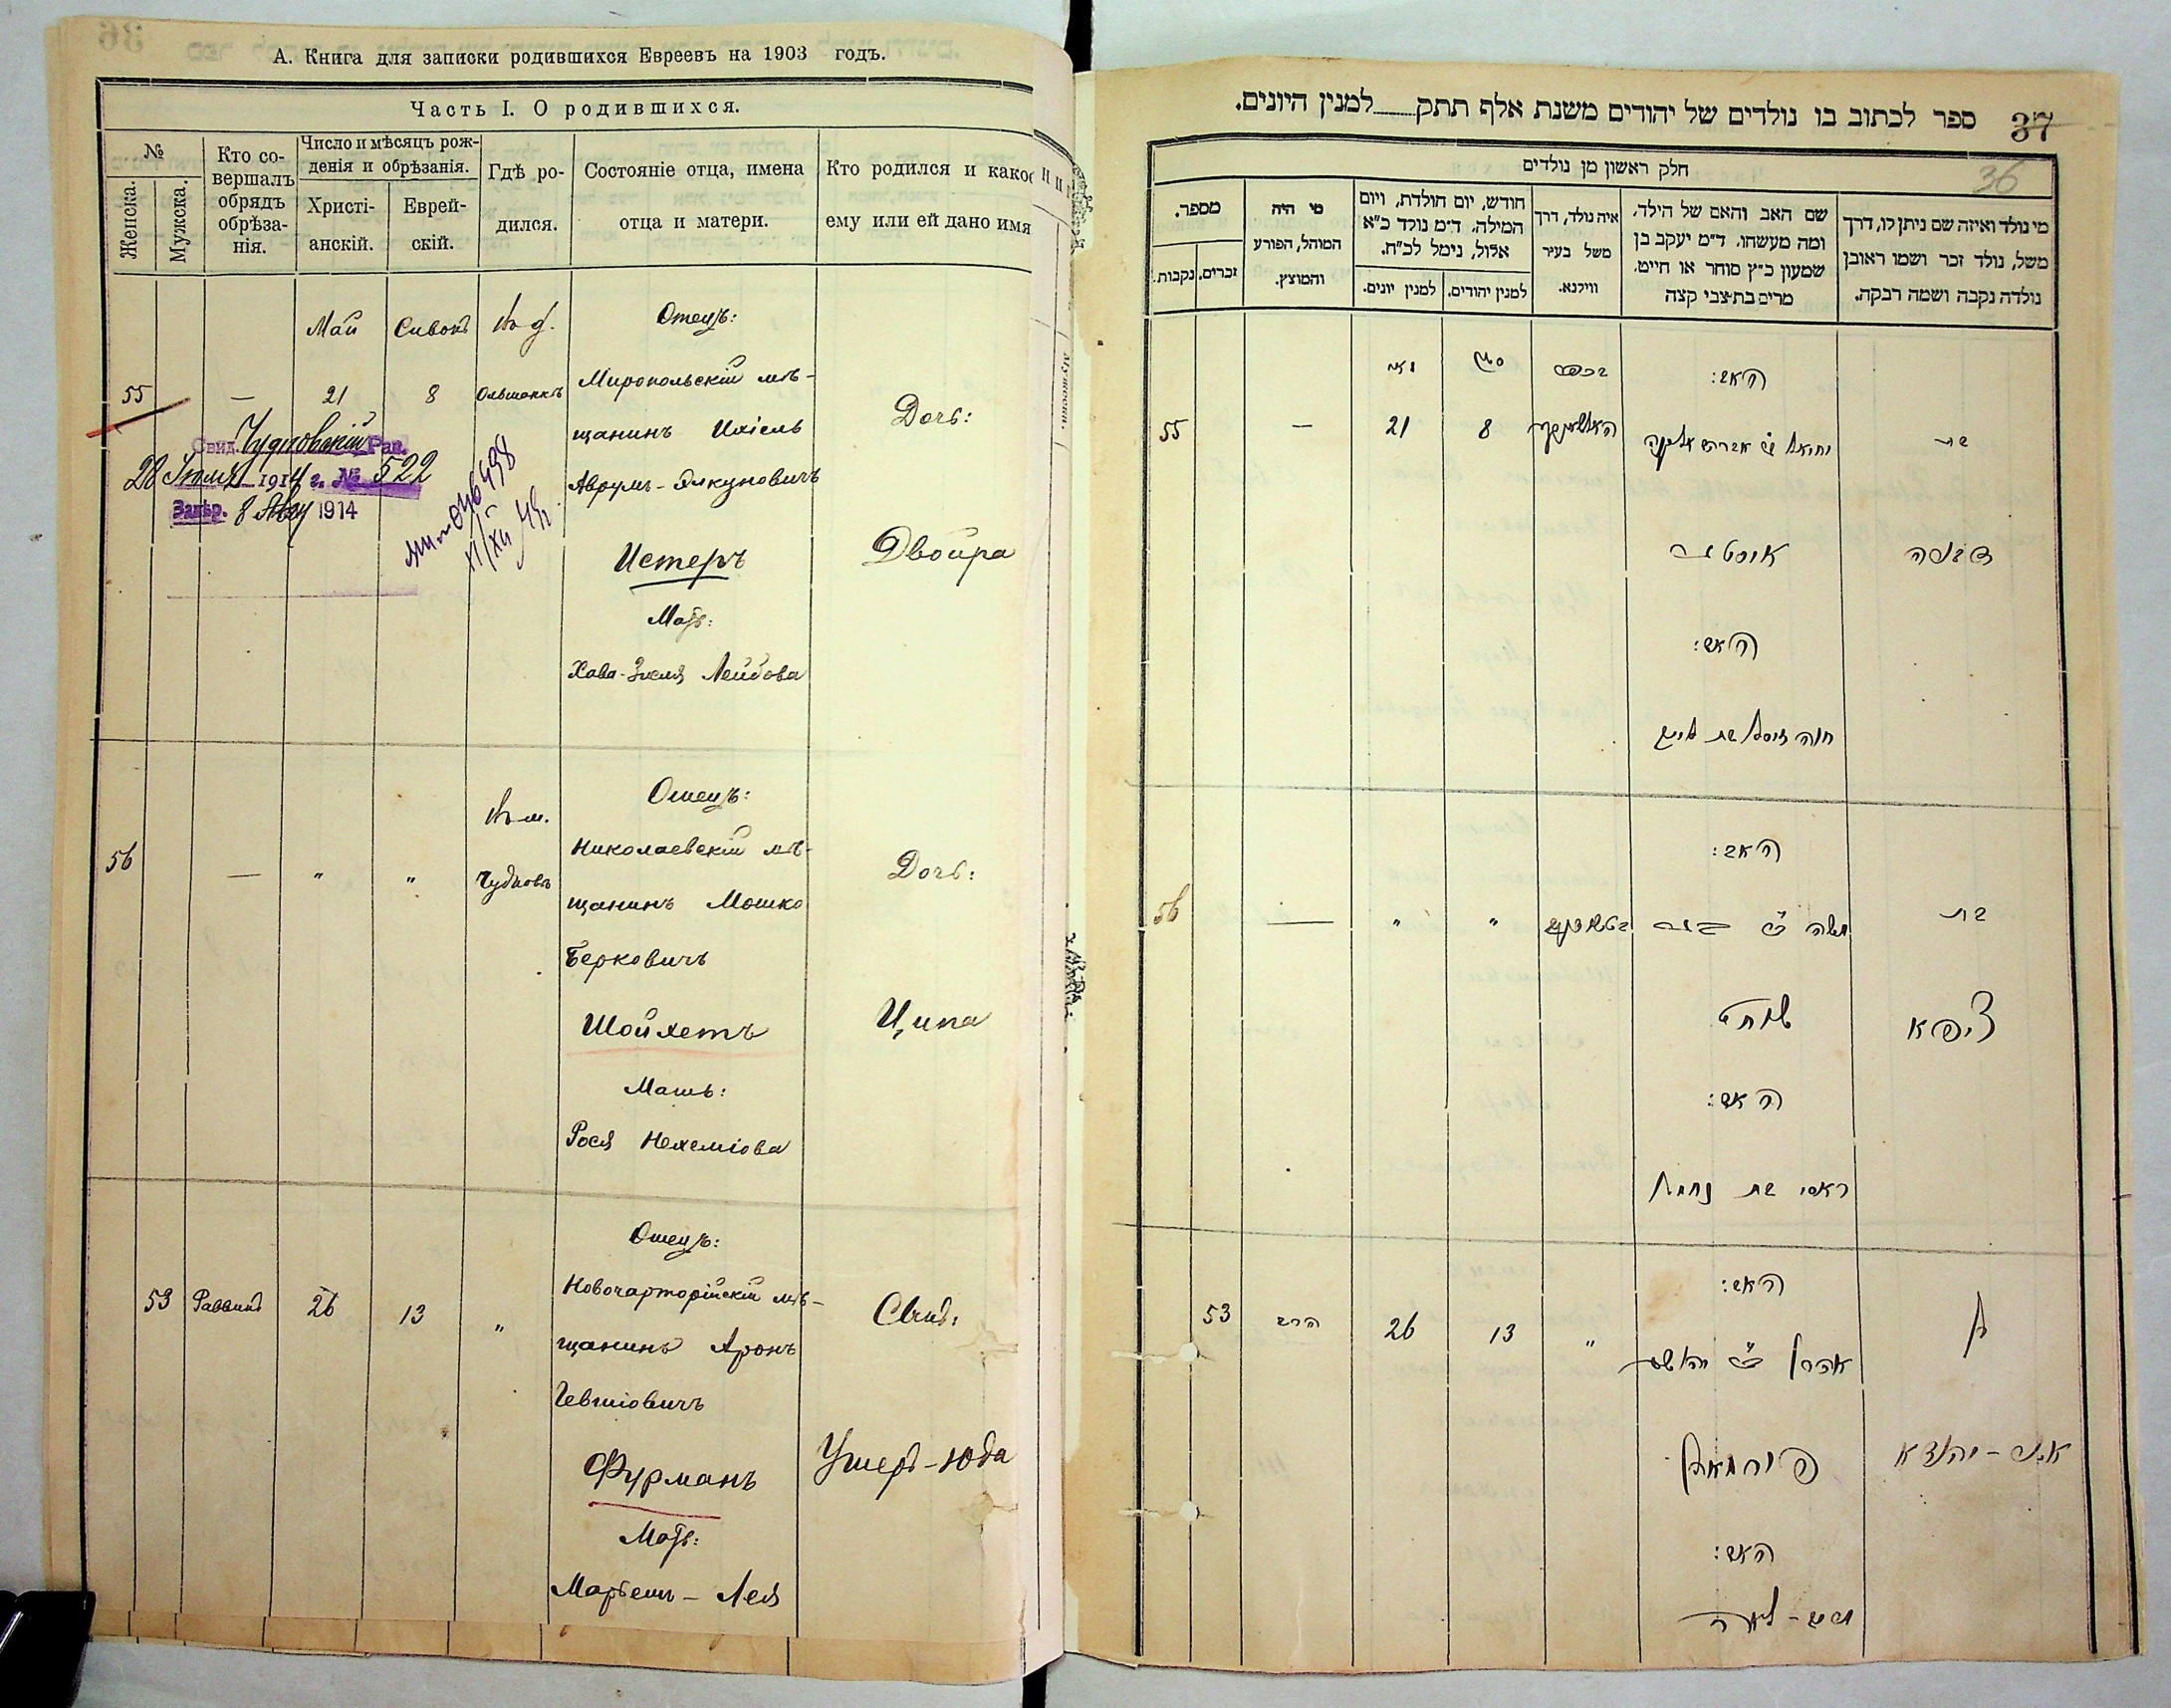 А. Книга для записки родившихся Евреевъ на 1903 годъ.
Часть I. О родившихся.
№
Женска.
Мужска.
Кто со-
вершалъ
обрядъ
обрѣза-
нія.
Число и мѣсяцъ рож-
денія и обрѣзанія.
Христі-
анскій.
Еврей-
скій.
Гдѣ ро-
дился.
Состояніе отца, имена
отца и матери.
Кто родился и какое
ему или ей дано имя
Май
Сивонъ
въ д.
Отецъ:
55
—
21
8
Ольшанкѣ
Миропольскій мѣ-
щанинъ Ихіель
Аврумъ-Элкуновичъ
Истеръ
Мать:
Хава-Зисля Лейбова
Дочь:
Двойра
Свид. Чудновскій Рав.
28 Іюля 1914 г. № 522
Завѣр. 8 Авгу 1914
56
—
"
"
въ м.
Чудновъ
Отецъ:
Николаевскій мѣ-
щанинъ Мошко
Берковичъ
Шойхетъ
Мать:
Рося Нехеміова
Дочь:
Ципа
53
Раввинъ
26
13
"
Отецъ:
Новочарторійскій мѣ-
щанинъ Аронъ
Фурманъ
Мать:
Марьемъ - Лея
Сынъ:
Ушеръ-Юда
37
ספר לכתוב בו נולדים של יהודים משנת אלף תתק למנין היונים.
36
חלק ראשון מן נולדים
מספר.
זכרים.
נקבות.
מי היה
המוהל, הפורע
והמוצץ.
חודש, יום הולדת, ויום
המילה, ד״מ נולד כ״א
אלול, נימל לכ״ח.
למנין יונים.
למנין יהודים.
איה נולד, דרך
משל בעיר
ווילנא.
שם האב והאם של הילד,
ומה מעשהו, ד״מ יעקב בן
שמעון כ״ץ סוחר או חייט,
מרים בת צבי קצה
מי נולד ואיזה שם ניתן לו, דרך
משל, נולד זכר ושמו ראובן
נולדה נקבה ושמה רבקה.
מאי
סיון
האב:
55
—
21
8
בת
דבורה
האם:
חוה זיסל בת לייב
האב:
56
—
"
"
משה ב״ר בער
בת
שוחט
ציפא
האם:
ראסי בת נחמי׳
האב:
53
הרב
26
13
"
בן
אהרן ב״ר יהושע
פורמאן
אשר - יהודא
האם:
מרים - לאה